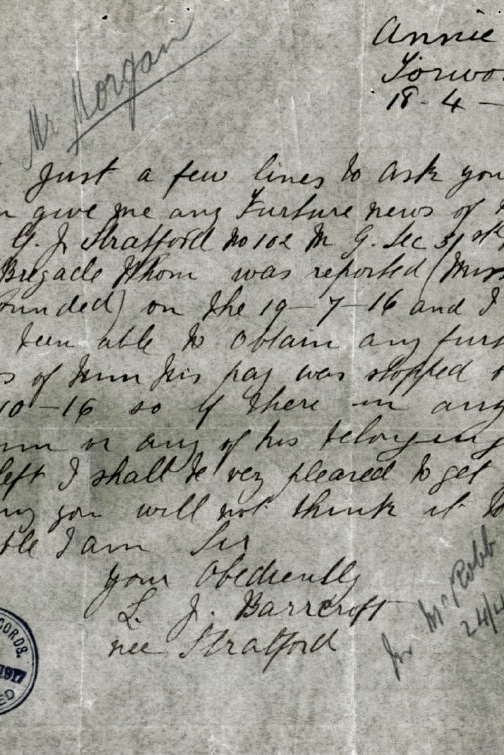 Mr Morgan
Annie
18-4-
Just a few lines to ask you
give me any Furture news of
G. J. Stratford No 102 M G. Sec 31st
Brigade Whom was reported (Miss
ounded) on the 19-7-16 and I
been able to obtain any furt
s of him his pay was stopped
10-16 so if there in any
or any of his belonging
left I shall be very pleared to get
you will not think it
ble I am Sir
your Obediently
L. J. Barrcroft
nee Stratford
Mr McRobb
24/4
CORDS.
1917
ED